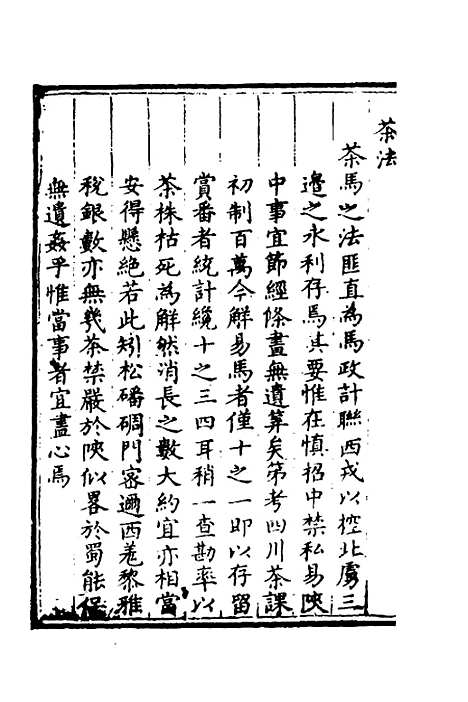 茶法
茶馬之法匪直為馬政計聯西戎以控北虜三
邊之永利存焉其要惟在慎招中禁私易陝
中事宜節經條畫無遺筭矣第考四川茶課
初制百萬今解易馬者僅十之一即以存留
賞番者統計纔十之三四耳稍一查勘率以
茶株枯死為解然消長之數大約宜亦相當
安得懸絕若此矧松磻碉門密邇西羗黎雅
稅銀數亦無幾茶禁嚴於陝似畧於蜀能保
無遺姦乎惟當事者宜盡心焉